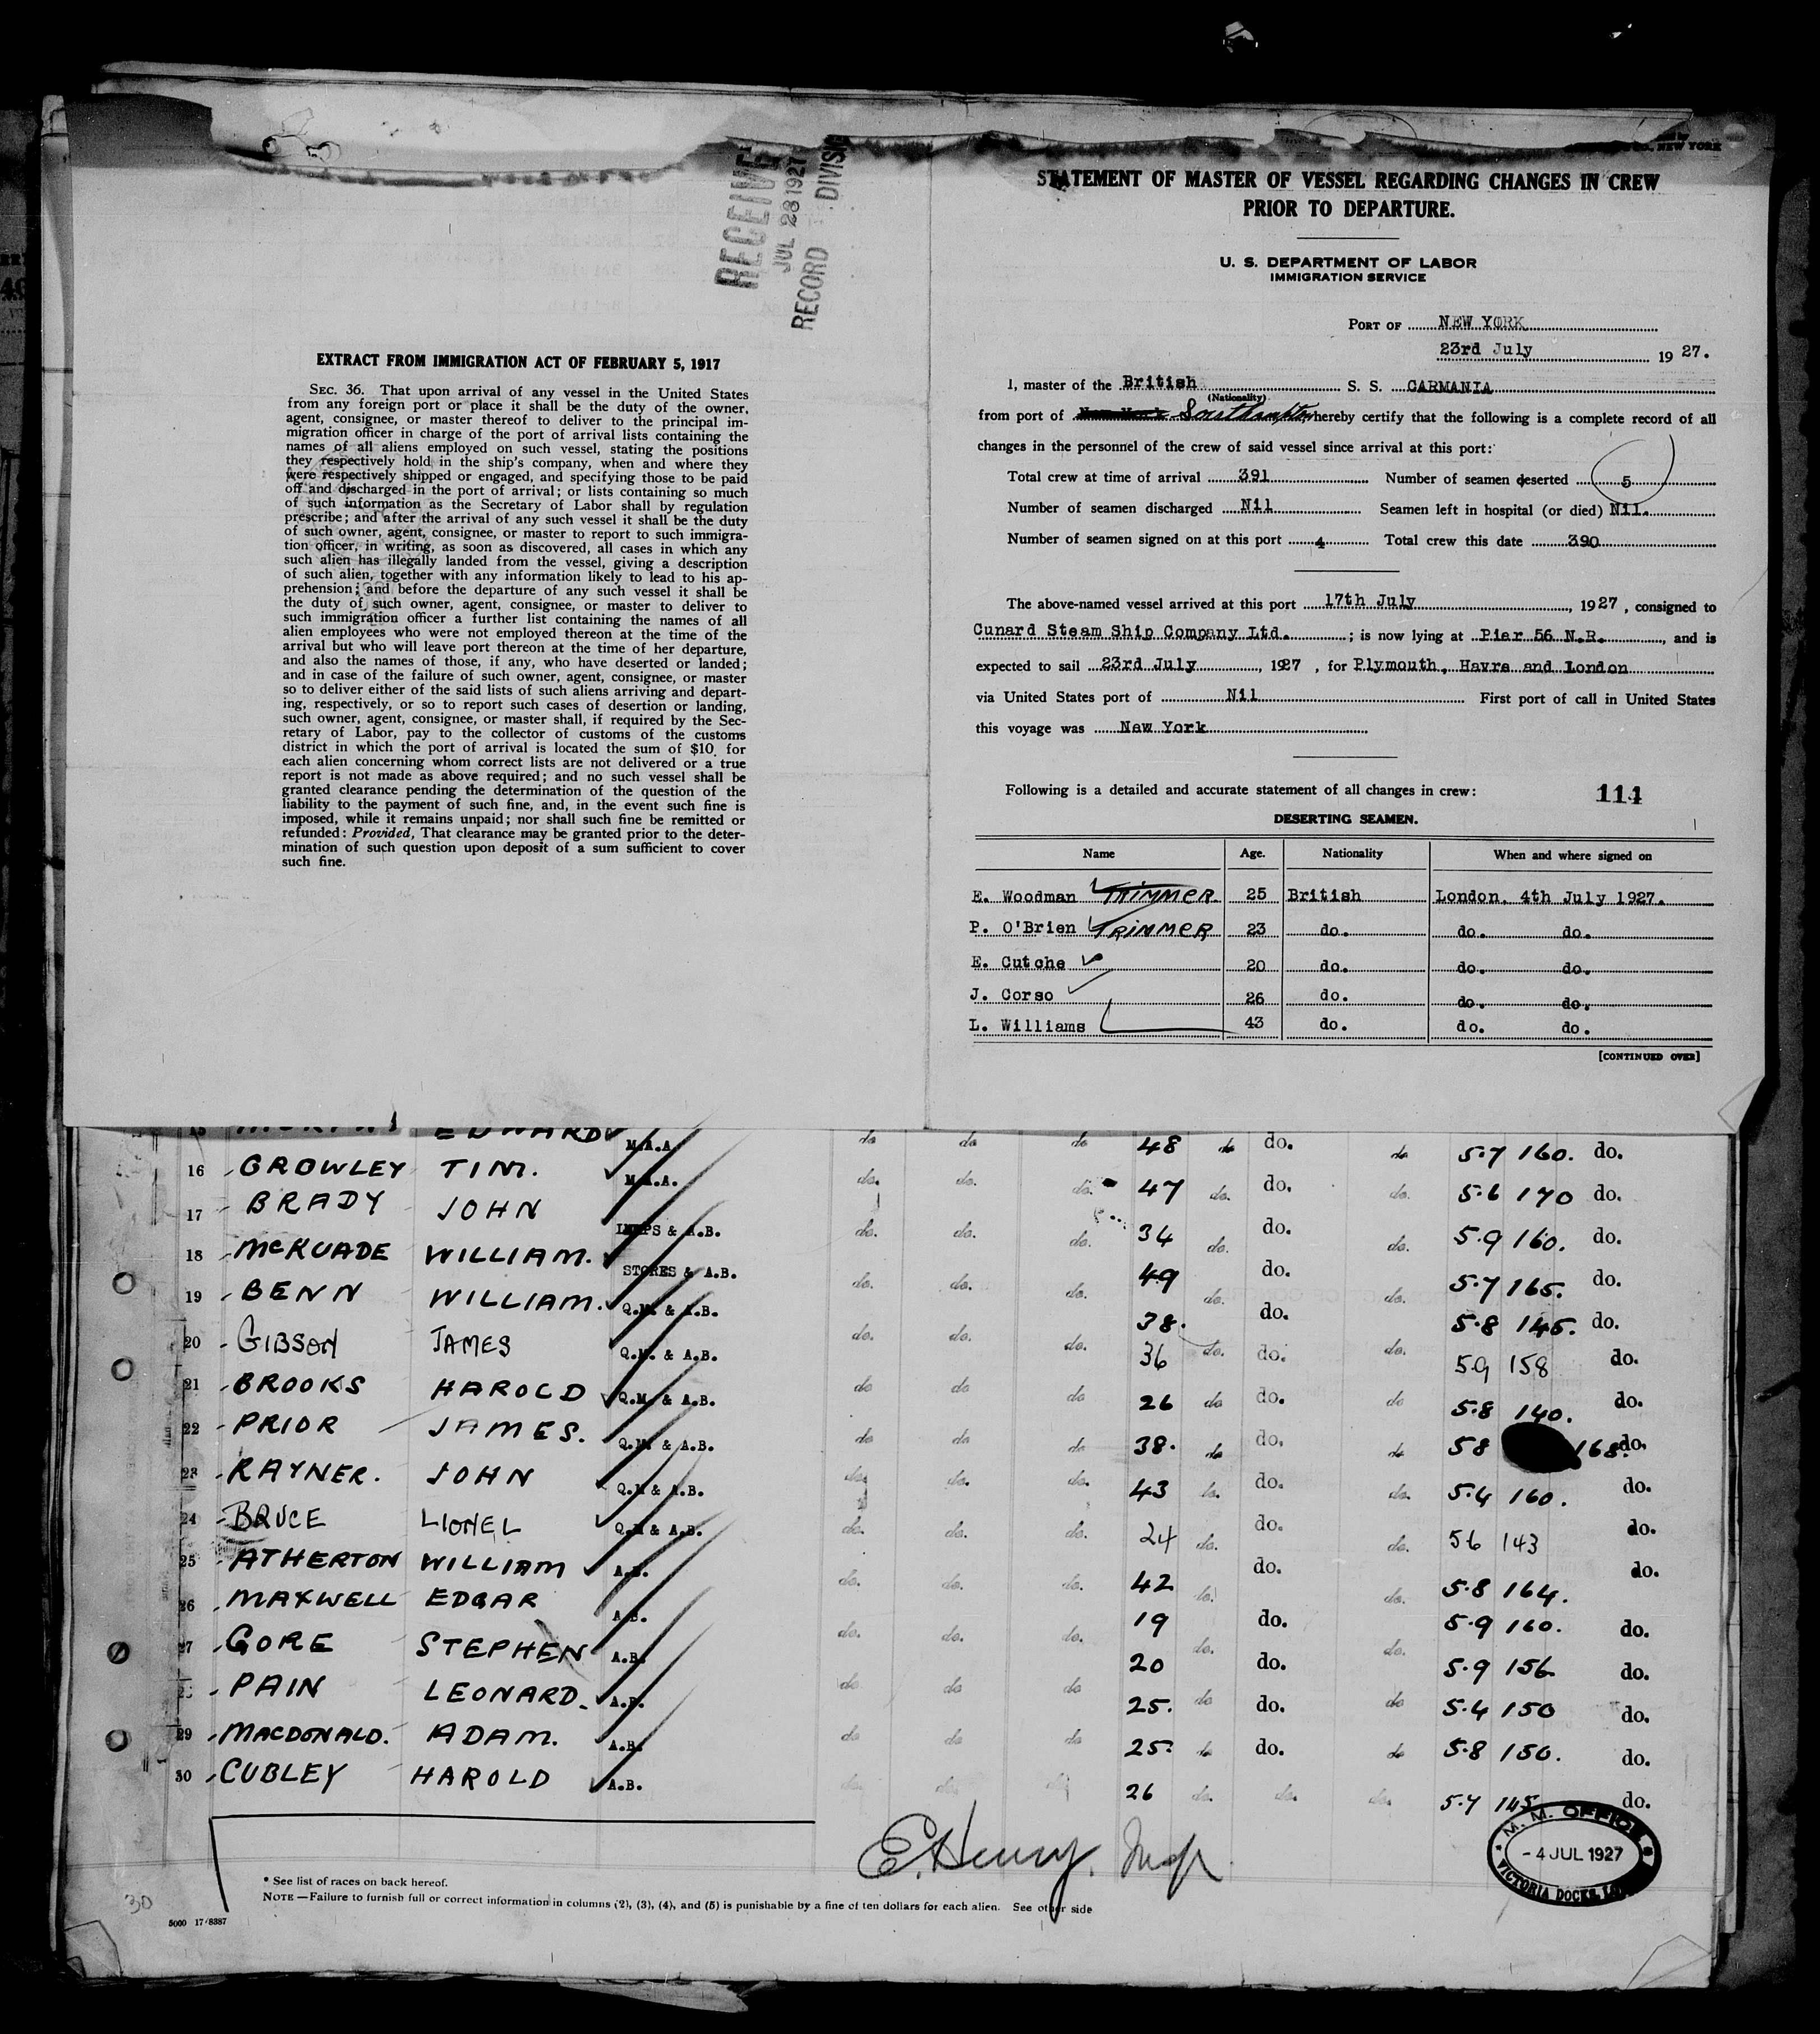 RECEIVE
JUL 28 1927
RECORD DIVISI
EXTRACT FROM IMMIGRATION ACT OF FEBRUARY 5, 1917
SEC. 36. That upon arrival of any vessel in the United States
from any foreign port or place it shall be the duty of the owner,
agent, consignee, or master thereof to deliver to the principal im-
migration officer in charge of the port of arrival lists containing the
names of all aliens employed on such vessel, stating the positions
they respectively hold in the ship's company, when and where they
were respectively shipped or engaged, and specifying those to be paid
off and discharged in the port of arrival; or lists containing so much
of such information as the Secretary of Labor shall by regulation
prescribe; and after the arrival of any such vessel it shall be the duty
of such owner, agent, consignee, or master to report to such immigra-
tion officer, in writing, as soon as discovered, all cases in which any
such alien has illegally landed from the vessel, giving a description
of such alien, together with any information likely to lead to his ap-
prehension; and before the departure of any such vessel it shall be
the duty of such owner, agent, consignee, or master to deliver to
such immigration officer a further list containing the names of all
alien employees who were not employed thereon at the time of the
arrival but who will leave port thereon at the time of her departure,
and also the names of those, if any, who have deserted or landed;
and in case of the failure of such owner, agent, consignee, or master
so to deliver either of the said lists of such aliens arriving and depart-
ing, respectively, or so to report such cases of desertion or landing,
such owner, agent, consignee, or master shall, if required by the Sec-
retary of Labor, pay to the collector of customs of the customs
district in which the port of arrival is located the sum of $10 for
each alien concerning whom correct lists are not delivered or a true
report is not made as above required; and no such vessel shall be
granted clearance pending the determination of the question of the
liability to the payment of such fine, and, in the event such fine is
imposed, while it remains unpaid; nor shall such fine be remitted or
refunded: Provided, That clearance may be granted prior to the deter-
mination of such question upon deposit of a sum sufficient to cover
such fine.
NEW YORK
STATEMENT OF MASTER OF VESSEL REGARDING CHANGES IN CREW
PRIOR TO DEPARTURE.
U. S. DEPARTMENT OF LABOR
IMMIGRATION SERVICE
PORT OF NEW YORK
23rd July 1927.
I, master of the British S. S. CARMANIA
(Nationality)
from port of Southampton hereby certify that the following is a complete record of all
changes in the personnel of the crew of said vessel since arrival at this port:
Total crew at time of arrival 391 Number of seamen deserted 5
Number of seamen discharged Nil Seamen left in hospital (or died) Nil.
Number of seamen signed on at this port 4 Total crew this date 390
The above-named vessel arrived at this port 17th July, 1927, consigned to
Cunard Steam Ship Company Ltd. ; is now lying at Pier 56 N.R., and is
expected to sail 23rd July, 1927, for Plymouth, Havre and London
via United States port of Nil First port of call in United States
this voyage was New York
Following is a detailed and accurate statement of all changes in crew: 114
DESERTING SEAMEN.
Name Age. Nationality When and where signed on
E. Woodman TRIMMER 25 British London. 4th July 1927.
P. O'Brien TRIMMER 23 do. do. do.
E. Cutche 20 do. do. do.
J. Corso 26 do. do. do.
L. Williams 43 do. do. do.
[CONTINUED OVER]
15 EDWARD M.A.A. do do do 48 do do. do 5.7 160. do.
16 GROWLEY TIM. M.A.A. do. do. do. 47 do. do. do. 5.6 170 do.
17 BRADY JOHN LAMPS & A.B. do. do. do. 34 do. do. do. 5.9 160. do.
18 McKUADE WILLIAM. STORES & A.B. do. do. do. 49 do. do. do. 5.7 165. do.
19 BENN WILLIAM. Q.M. & A.B. do. do. do. 38. do. do. do. 5.8 145. do.
20 GIBSON JAMES Q.M. & A.B. 36 do. 59 158 do.
21 BROOKS HAROLD Q.M. & A.B. do do do 26 do do. do 5.8 140. do.
22 PRIOR JAMES. Q.M. & A.B. do do do 38. do do. do 58 168. do.
23 RAYNER. JOHN Q.M & A.B. do. do. do. 43 do. do. do. 5.4 160. do.
24 BRUCE LIONEL Q.M & A.B. do. do. do. 24 do. do. do. 56 143 do.
25 ATHERTON WILLIAM A.B. do. do. do. 42 do. do. do. 5.8 164. do.
26 MAXWELL EDGAR A.B. 19 do. 5.9 160. do.
27 GORE STEPHEN A.B. do. do. do. 20 do. do. do. 5.9 156 do.
28 PAIN LEONARD. A.B. do do do 25. do do. do 5.4 150 do.
29 MACDONALD. ADAM. A.B. do do do 25. do do. do 5.8 150. do.
30 CUBLEY HAROLD A.B. do. do. do. 26 do. do. do. 5.7 145 do.
E. Henry. Insp.
M. M. OFFICE
- 4 JUL 1927
VICTORIA DOCKS
* See list of races on back hereof.
NOTE—Failure to furnish full or correct information in columns (2), (3), (4), and (5) is punishable by a fine of ten dollars for each alien. See other side
30
5000 17/8387